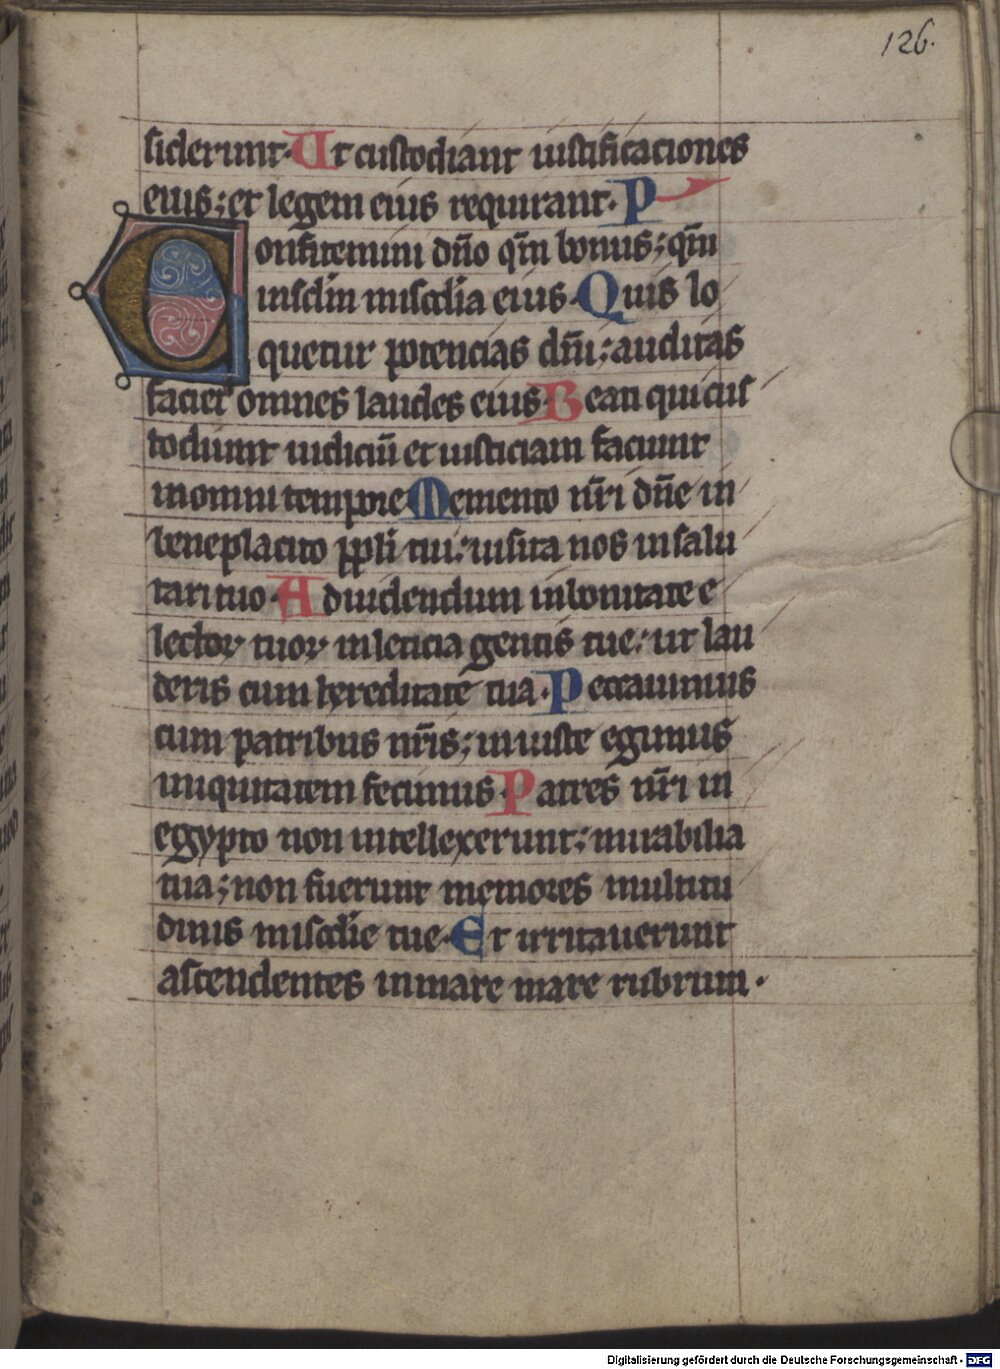 126.
siderunt. Ut custodiant iustificaciones
eius; et legem eius requirant. P
Confitemini dño qm̄ bonus; qm̄
in sclm̄ misc̄dia eius. Quis lo
quetur potencias dñi; auditas
faciet omnes laudes eius. Beati qui cus
todiunt iudiciū et iusticiam faciunt
in omni tempore Memento nr̄i dñe in
beneplacito ppli tui; uisita nos in salu
tari tuo. Ad uidendum in bonitate e
lector tuor in leticia gentis tue; ut lau
deris cum hereditate tua. Peccauimus
cum patribus nr̄is; iniuste egimus
iniquitatem fecimus. Patres nr̄i in
egypto non intellexerunt; mirabilia
tua; non fuerunt memores multitu
dinis misc̄die tue. Et irritauerunt
ascendentes in mare mare rubrum.
Digitalisierung gefördert durch die Deutsche Forschungsgemeinschaft - DFG